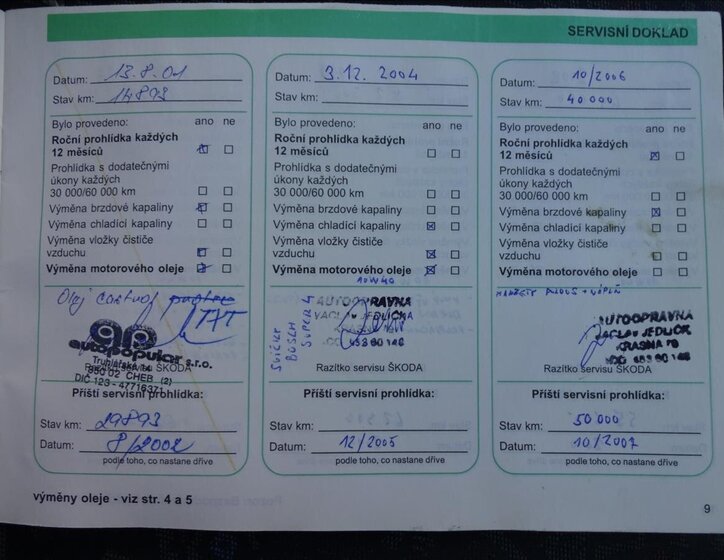 SERVISNÍ DOKLAD
Datum: 13.8.01
Stav km: 14893
Bylo provedeno: ano ne
Roční prohlídka každých
12 měsíců
Prohlídka s dodatečnými
úkony každých
30 000/60 000 km
Výměna brzdové kapaliny
Výměna chladící kapaliny
Výměna vložky čističe
vzduchu
Výměna motorového oleje
Olej castrol
TXT
autopopular s.r.o.
Truhlářská
Razítko servisu ŠKODA
350 02 CHEB (2)
DIČ 123 - 47716371
Příští servisní prohlídka:
Stav km: 29893
Datum: 8/2002
podle toho, co nastane dříve
Datum: 3.12. 2004
Stav km:
Bylo provedeno: ano ne
Roční prohlídka každých
12 měsíců
Prohlídka s dodatečnými
úkony každých
30 000/60 000 km
Výměna brzdové kapaliny
Výměna chladící kapaliny
Výměna vložky čističe
vzduchu
Výměna motorového oleje
10W40
SVÍČKY
BOSCH
SUPER 4
AUTOOPRAVNA
VÁCLAV JEDLIČKA
Razítko servisu ŠKODA
Příští servisní prohlídka:
Stav km:
Datum: 12/2005
podle toho, co nastane dříve
Datum: 10/2006
Stav km: 40 000
Bylo provedeno: ano ne
Roční prohlídka každých
12 měsíců
Prohlídka s dodatečnými
úkony každých
30 000/60 000 km
Výměna brzdové kapaliny
Výměna chladící kapaliny
Výměna vložky čističe
vzduchu
Výměna motorového oleje
MANŽETY
AUTOOPRAVNA
VÁCLAV JEDLIČK
KRÁSNÁ
Razítko servisu ŠKODA
Příští servisní prohlídka:
Stav km: 50 000
Datum: 10/2007
podle toho, co nastane dříve
výměny oleje - viz str. 4 a 5
9